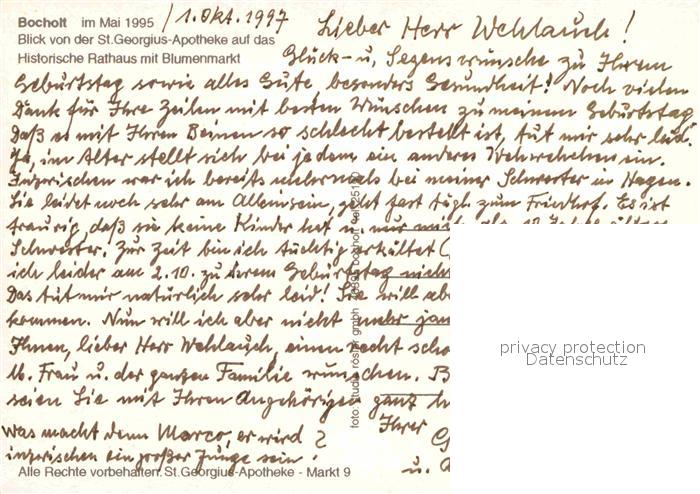 Bocholt im Mai 1995 / 1. Okt. 1997
Blick von der St.Georgius-Apotheke auf das
Historische Rathaus mit Blumenmarkt
Lieber Herr Wehlauch!
Glück- u. Segenswünsche zu Ihrem
Geburtstag sowie alles Gute, besonders Gesundheit! Noch vielen
Dank für Ihre Zeilen mit besten Wünschen zu meinem Geburtstag.
Daß es mit Ihren Beinen so schlecht bestellt ist, tut mir sehr leid.
Ja, im Alter stellt sich bei jedem ein anderes Wehwehchen ein.
Inzwischen war ich bereits mehrmals bei meiner Schwester in Hagen.
Sie leidet noch sehr am Alleinsein, geht fast tägl. zum Friedhof. Es ist
traurig, daß sie keine Kinder hat u. nur mich als
Schwester. Zur Zeit bin ich tüchtig erkältet
ich leider am 2.10. zu Ihrem Geburtstag nicht
Das tut mir natürlich sehr leid! Sie will
kommen. Nun will ich aber nicht mehr
Ihnen, lieber Herr Wehlauch, einen recht
lb. Frau u. der ganzen Familie wünschen.
seien Sie mit Ihren Angehörigen ganz
Ihrer
Was macht denn Marco, er wird
inzwischen ein großer Junge sein?
u.
Alle Rechte vorbehalten. St.Georgius-Apotheke - Markt 9
privacy protection
Datenschutz